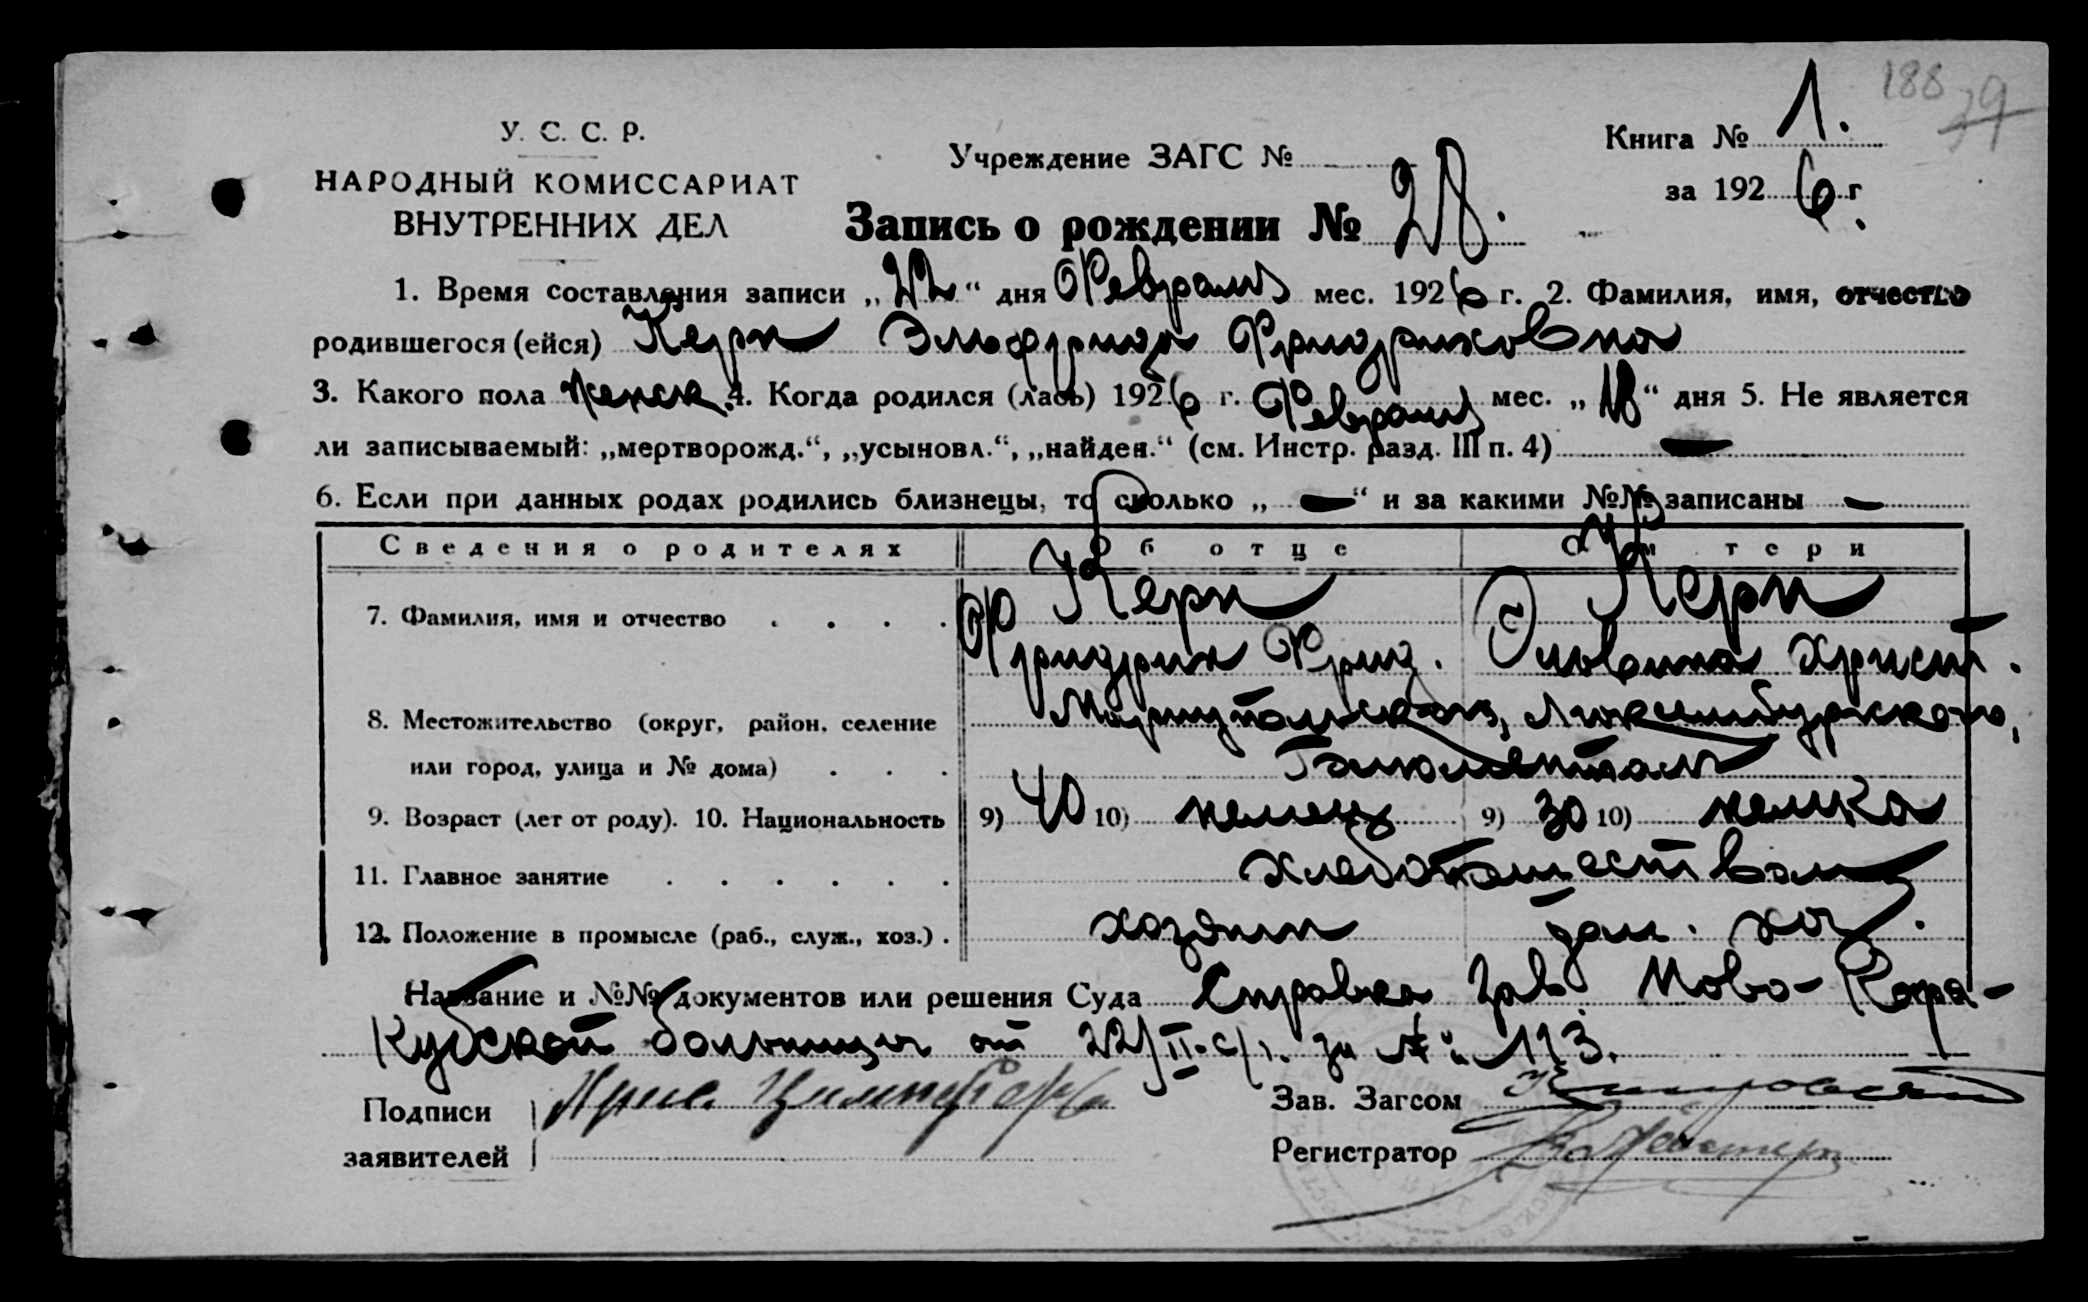 188 39
У. С. С. Р.
НАРОДНЫЙ КОМИССАРИАТ
ВНУТРЕННИХ ДЕЛ
Учреждение ЗАГС №
Книга № 1.
за 1926 г.
Запись о рождении № 28.
1. Время составления записи „22“ дня Февраля мес. 1926 г. 2. Фамилия, имя, отчество
родившегося (ейся) Керн Эльфрида Фридриховна
3. Какого пола женск. 4. Когда родился (лась) 1926 г. Февраля мес. „18“ дня 5. Не является
ли записываемый: „мертворожд.“, „усыновл.“, „найден.“ (см. Инстр. разд. III п. 4) —
6. Если при данных родах родились близнецы, то сколько „ — “ и за какими №№ записаны —
Сведения о родителях Об отце О матери
7. Фамилия, имя и отчество . . . . Керн Керн
Фридрих Фрид. Христ.
8. Местожительство (округ, район, селение Мариупольского, Люксембургского,
или город, улица и № дома) . . .
9. Возраст (лет от роду). 10. Национальность 9) 40 10) немец 9) 30 10) немка
11. Главное занятие . . . . . . хлебопашеством
12. Положение в промысле (раб., служ., хоз.) . хозяин дом. хоз.
Название и №№ документов или решения Суда Справка Ново-Кара-
Кубской больницы от 22/II-с/г. за № 113.
Подписи
заявителей
Зав. Загсом
Регистратор